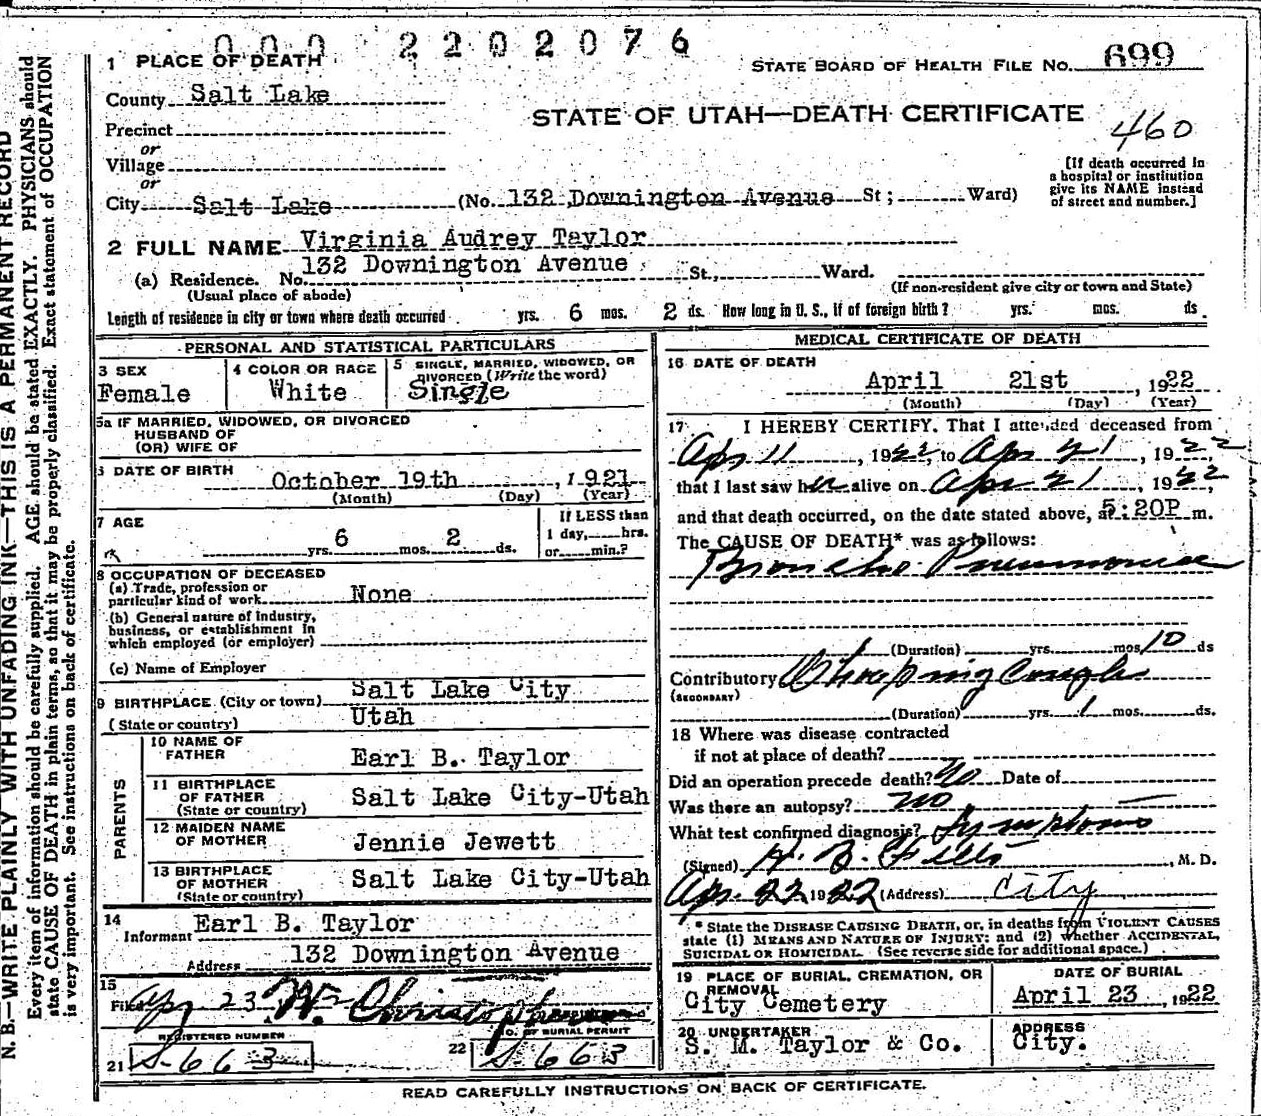 000 2202076
1 PLACE OF DEATH
STATE BOARD OF HEALTH FILE NO. 699
County Salt Lake
STATE OF UTAH—DEATH CERTIFICATE
460
Precinct
or
Village
or
City Salt Lake (No. 132 Downington Avenue St; Ward)
[If death occurred in
a hospital or institution
give its NAME instead
of street and number.]
2 FULL NAME Virginia Audrey Taylor
(a) Residence. No. 132 Downington Avenue St., Ward.
(Usual place of abode)
(If non-resident give city or town and State)
Length of residence in city or town where death occurred yrs. 6 mos. 2 ds. How long in U. S., if of foreign birth? yrs. mos. ds
PERSONAL AND STATISTICAL PARTICULARS
3 SEX
Female
4 COLOR OR RACE
White
5 SINGLE, MARRIED, WIDOWED, OR
DIVORCED (Write the word)
Single
5a IF MARRIED, WIDOWED, OR DIVORCED
HUSBAND OF
(OR) WIFE OF
6 DATE OF BIRTH
October 19th, 1921
(Month) (Day) (Year)
7 AGE
6 yrs. mos. 2 ds.
If LESS than
1 day, hrs.
or min.?
8 OCCUPATION OF DECEASED
(a) Trade, profession or
particular kind of work None
(b) General nature of industry,
business, or establishment in
which employed (or employer)
(c) Name of Employer
9 BIRTHPLACE (City or town) Salt Lake City
(State or country) Utah
PARENTS
10 NAME OF
FATHER Earl B. Taylor
11 BIRTHPLACE
OF FATHER
(State or country) Salt Lake City-Utah
12 MAIDEN NAME
OF MOTHER Jennie Jewett
13 BIRTHPLACE
OF MOTHER
(State or country) Salt Lake City-Utah
14
Informant Earl B. Taylor
Address 132 Downington Avenue
15
Filed Apr 23
REGISTERED NUMBER
NO. OF BURIAL PERMIT
21 S-663
22 S-663
MEDICAL CERTIFICATE OF DEATH
16 DATE OF DEATH
April 21st, 1922
(Month) (Day) (Year)
17 I HEREBY CERTIFY, That I attended deceased from
Apr 11, 1922, to Apr 21, 1922,
that I last saw her alive on Apr 21, 1922,
and that death occurred, on the date stated above, at 5:20P m.
The CAUSE OF DEATH* was as follows:
Broncho-Pneumonia
(Duration) yrs. mos 10 ds
Contributory Whooping Cough
(SECONDARY)
(Duration) yrs. 1 mos. ds.
18 Where was disease contracted
if not at place of death?
Did an operation precede death? No Date of
Was there an autopsy? no
What test confirmed diagnosis? Symptoms
(Signed) M. D.
Apr. 22 1922 (Address) City
* State the DISEASE CAUSING DEATH, or, in deaths from VIOLENT CAUSES
state (1) MEANS AND NATURE OF INJURY: and (2) whether ACCIDENTAL,
SUICIDAL OR HOMICIDAL. (See reverse side for additional space.)
19 PLACE OF BURIAL, CREMATION, OR
REMOVAL
City Cemetery
DATE OF BURIAL
April 23, 1922
20 UNDERTAKER
S. M. Taylor & Co.
ADDRESS
City.
READ CAREFULLY INSTRUCTIONS ON BACK OF CERTIFICATE.
N. B.—WRITE PLAINLY WITH UNFADING INK—THIS IS A PERMANENT RECORD
Every item of information should be carefully supplied. AGE should be stated EXACTLY. PHYSICIANS should
state CAUSE OF DEATH in plain terms, so that it may be properly classified. Exact statement of OCCUPATION
is very important. See instructions on back of certificate.